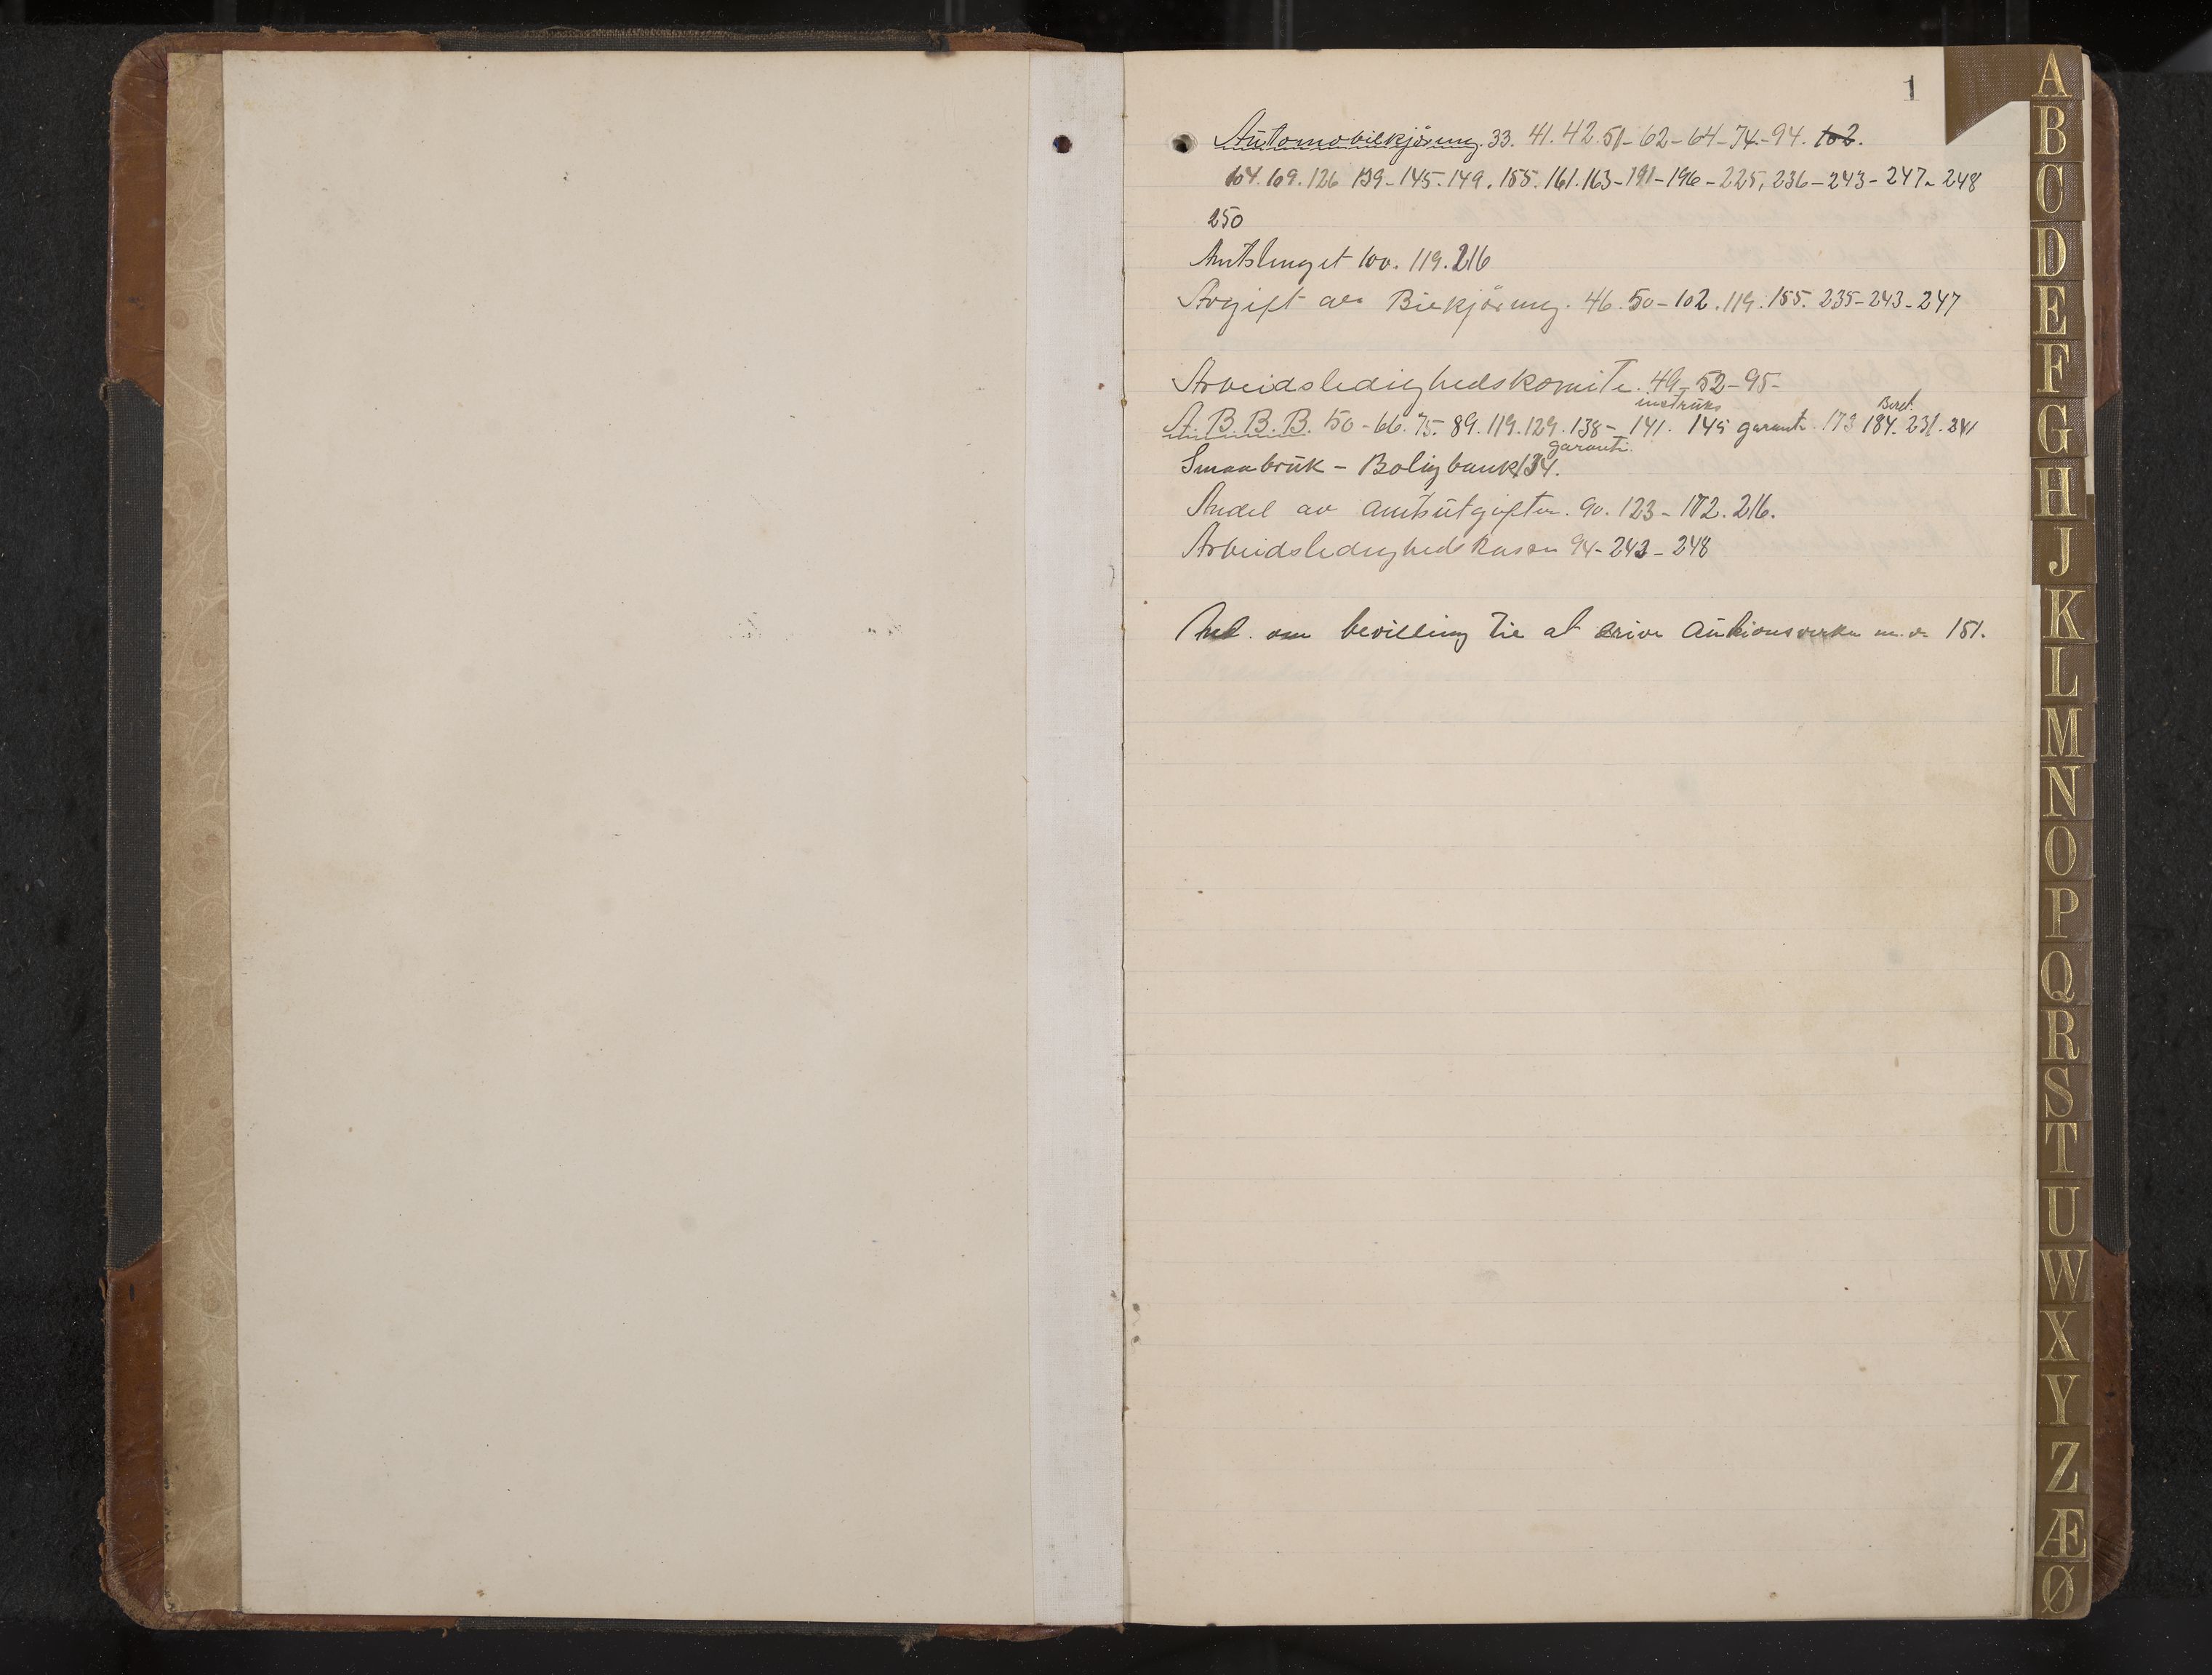 1
Automobilkjøring. 33. 41. 42. 51- 62- 64- 74- 94. 102.
104. 109. 126 139- 145. 149. 155. 161. 163- 191- 196- 225, 236- 243- 247- 248
250
Amtstinget 100. 119. 216
Avgift av Bilkjøring. 46. 50- 102. 119. 155. 235- 243- 247
Arbeidsledighedskomite. 49- 52- 95-
instruks Beret.
A. B. B. B. 50- 66. 75- 89. 119. 129. 138- 141. 145 garanti. 173 184. 231. 241
garanti.
Smaabruk - Boligbank 134.
Andel av amtsutgifter. 90. 123- 172. 216.
Arbeidsledighedskassen 94- 243- 248
And. om bevilling til at drive Auktionsverken m.v. 151.
A
B
C
D
E
F
G
H
J
K
L
M
N
O
P
Q
R
S
T
U
W
X
Y
Z
Æ
Ø